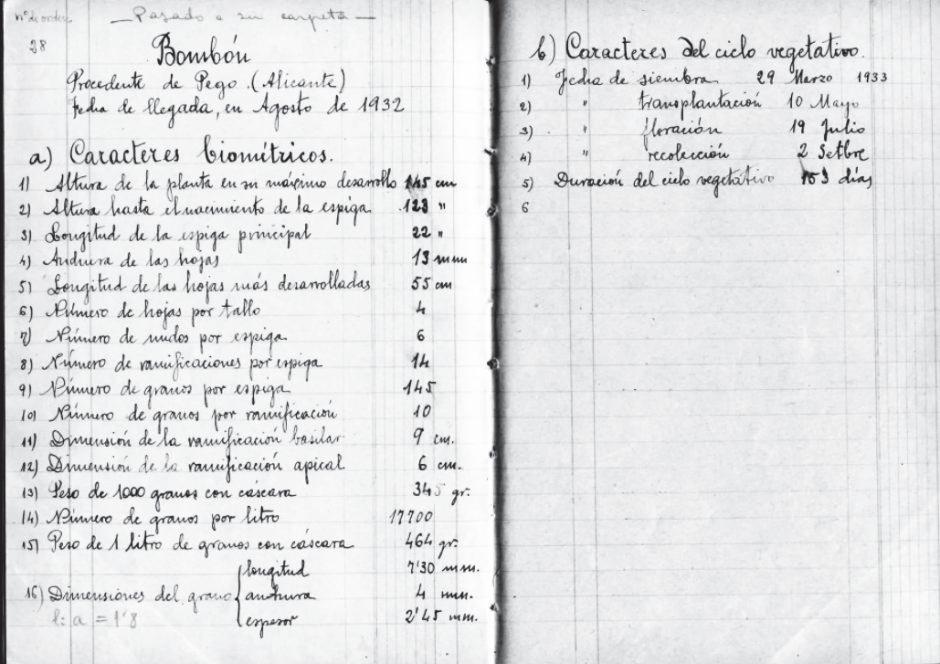 nº de orden — Pasado a su carpeta —
28
Bombón
Procedente de Pego (Alicante)
Fecha de llegada, en Agosto de 1932
a) Caracteres biométricos.
1) Altura de la planta en su máximo desarrollo 145 cm
2) Altura hasta el nacimiento de la espiga 123 "
3) Longitud de la espiga principal 22 "
4) Anchura de las hojas 13 mm
5) Longitud de las hojas más desarrolladas 55 cm
6) Número de hojas por tallo 4
7) Número de nudos por espiga 6
8) Número de ramificaciones por espiga 14
9) Número de granos por espiga 145
10) Número de granos por ramificación 10
11) Dimensión de la ramificación basilar 9 cm.
12) Dimensión de la ramificación apical 6 cm.
13) Peso de 1000 granos con cáscara 345 gr.
14) Número de granos por litro 17700
15) Peso de 1 litro de granos con cáscara 464 gr.
16) Dimensiones del grano { longitud 7'30 mm.
anchura 4 mm.
espesor 2'45 mm.
l: a = 1'8
b) Caracteres del ciclo vegetativo.
1) Fecha de siembra 29 Marzo 1933
2) " transplantación 10 Mayo
3) " floración 19 Julio
4) " recolección 2 Setbre
5) Duración del ciclo vegetativo días
6